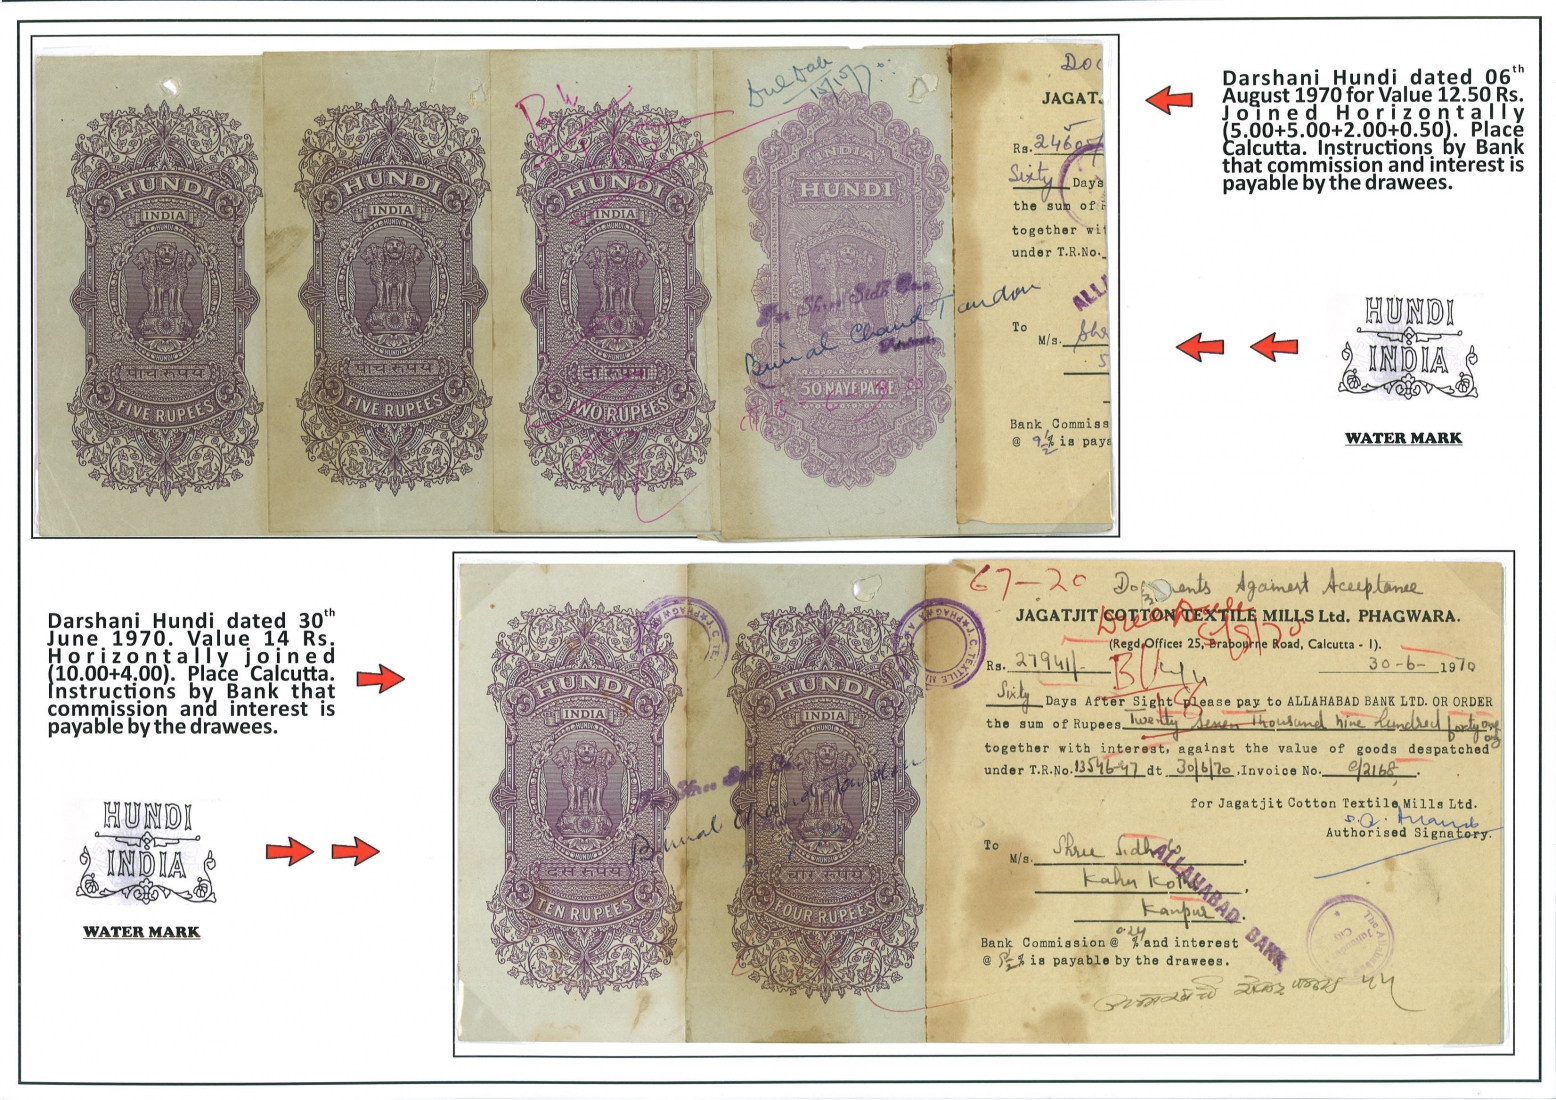 Darshani Hundi dated 06th
August 1970 for Value 12.50 Rs.
Joined Horizontally
(5.00+5.00+2.00+0.50). Place
Calcutta. Instructions by Bank
that commission and interest is
payable by the drawees.
HUNDI
INDIA
HUNDI
पांच रूपये
FIVE RUPEES
HUNDI
INDIA
HUNDI
पांच रूपये
FIVE RUPEES
HUNDI
INDIA
HUNDI
दो रूपया
TWO RUPEES
Due Date
INDIA
HUNDI
For Shree Sidh
Bimal Chand Tandon
50 NAYE PAISE
JAGATJ
Rs. 24605/
Sixty Days
the sum of R
together wit
under T.R.No.
ALLA
To
M/s. Shre
Bank Commiss
@ 9½% is paya
HUNDI
INDIA
WATER MARK
Darshani Hundi dated 30th
June 1970. Value 14 Rs.
Horizontally joined
(10.00+4.00). Place Calcutta.
Instructions by Bank that
commission and interest is
payable by the drawees.
HUNDI
INDIA
WATER MARK
HUNDI
INDIA
HUNDI
दस रूपये
TEN RUPEES
HUNDI
INDIA
HUNDI
चार रूपये
FOUR RUPEES
For Shree Sidh
Bimal Chand Tandon
67-20
Documents Against Acceptance
JAGATJIT COTTON TEXTILE MILLS Ltd. PHAGWARA.
Due Date
(Regd.Office: 25, Brabourne Road, Calcutta - 1).
Rs. 27941/- 30-6-1970
Sixty Days After Sight please pay to ALLAHABAD BANK LTD. OR ORDER
the sum of Rupees Twenty Seven Thousand nine hundred forty one only
together with interest, against the value of goods despatched
under T.R.No. 13546-47 dt 30/6/70, Invoice No. e/2168.
for Jagatjit Cotton Textile Mills Ltd.
Authorised Signatory.
To
M/s. Shree Sidh
Kahu Kothi,
Kanpur.
ALLAHABAD BANK
Bank Commission @ % and interest
@ 9½% is payable by the drawees.